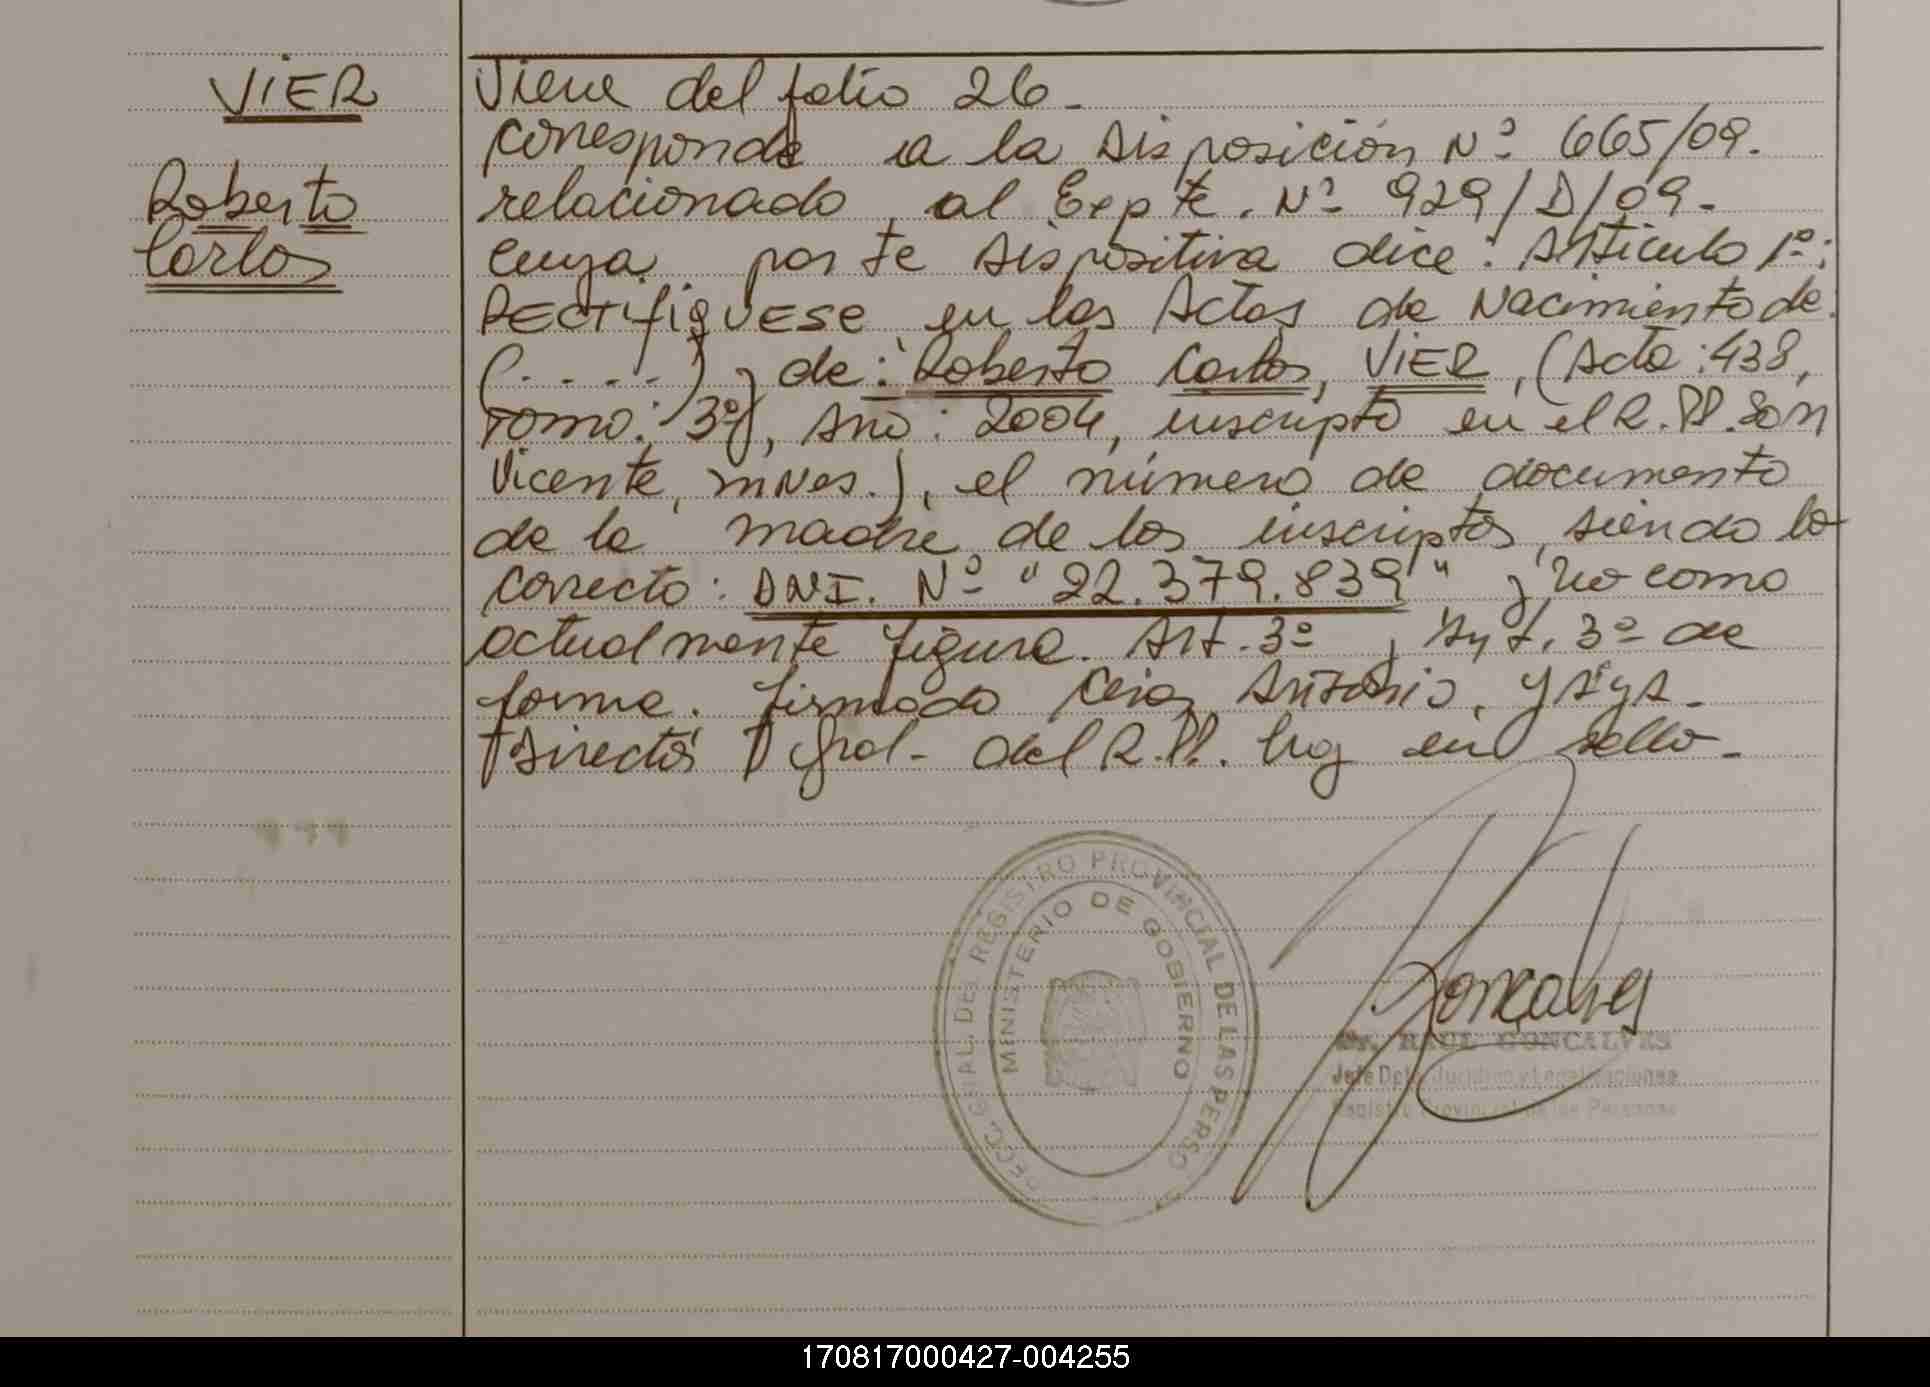 VIER
Roberto
Carlos
Viene del folio 26-
corresponde a la Disposición Nº 665/09.
relacionado al Expte. Nº 929/D/09-
cuya parte dispositiva dice: Artículo 1º:
RECTifiqUESE en las Actas de Nacimiento de:
(.....) y de: Roberto Carlos, VIER, (Acta: 438,
Tomo: 3º), Año: 2004, inscripto en el R.PP. San
Vicente, mnes.), el número de documento
de la madre de los inscriptos, siendo lo
correcto: DNI. Nº "22.379.839" y no como
actualmente figura. Art. 3º y 3º de
forma. firmado Antonio,
Director Gral- del R.PP. hay en sello-
DIRECC. GRAL. DEL REGISTRO PROVINCIAL DE LAS PERSO
MINISTERIO DE GOBIERNO
Goncalves
Dr. RAUL GONCALVES
Jefe Dpto. Jurídico y Legalizaciones
Registro Provincial de las Personas
170817000427-004255